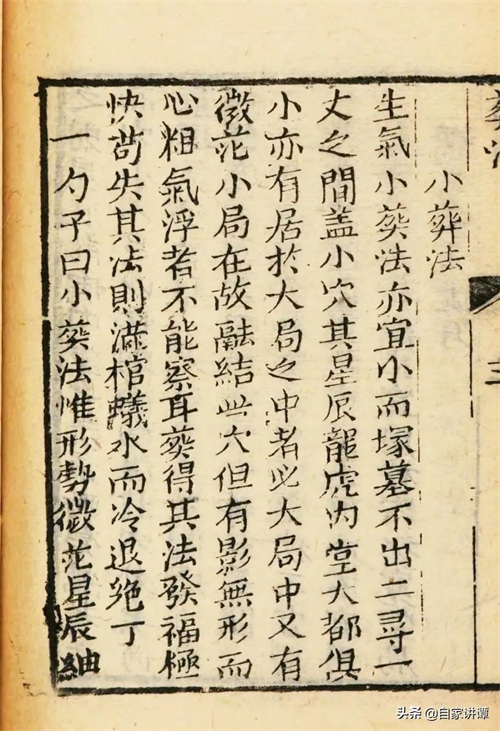 小葬法
生氣小葬法亦宜小而塚墓不出二尋一
丈之間盖小穴其星辰龍虎内堂大都俱
小亦有居於大局之中者必大局中又有
微茫小局在故融結此穴但有影無形而
心粗氣浮者不能察耳葬得其法發福極
快苟失其法則滿棺蟻水而冷退絶丁
一勺子曰小葬法惟形勢微茫星辰細
头条 @自家讲谭